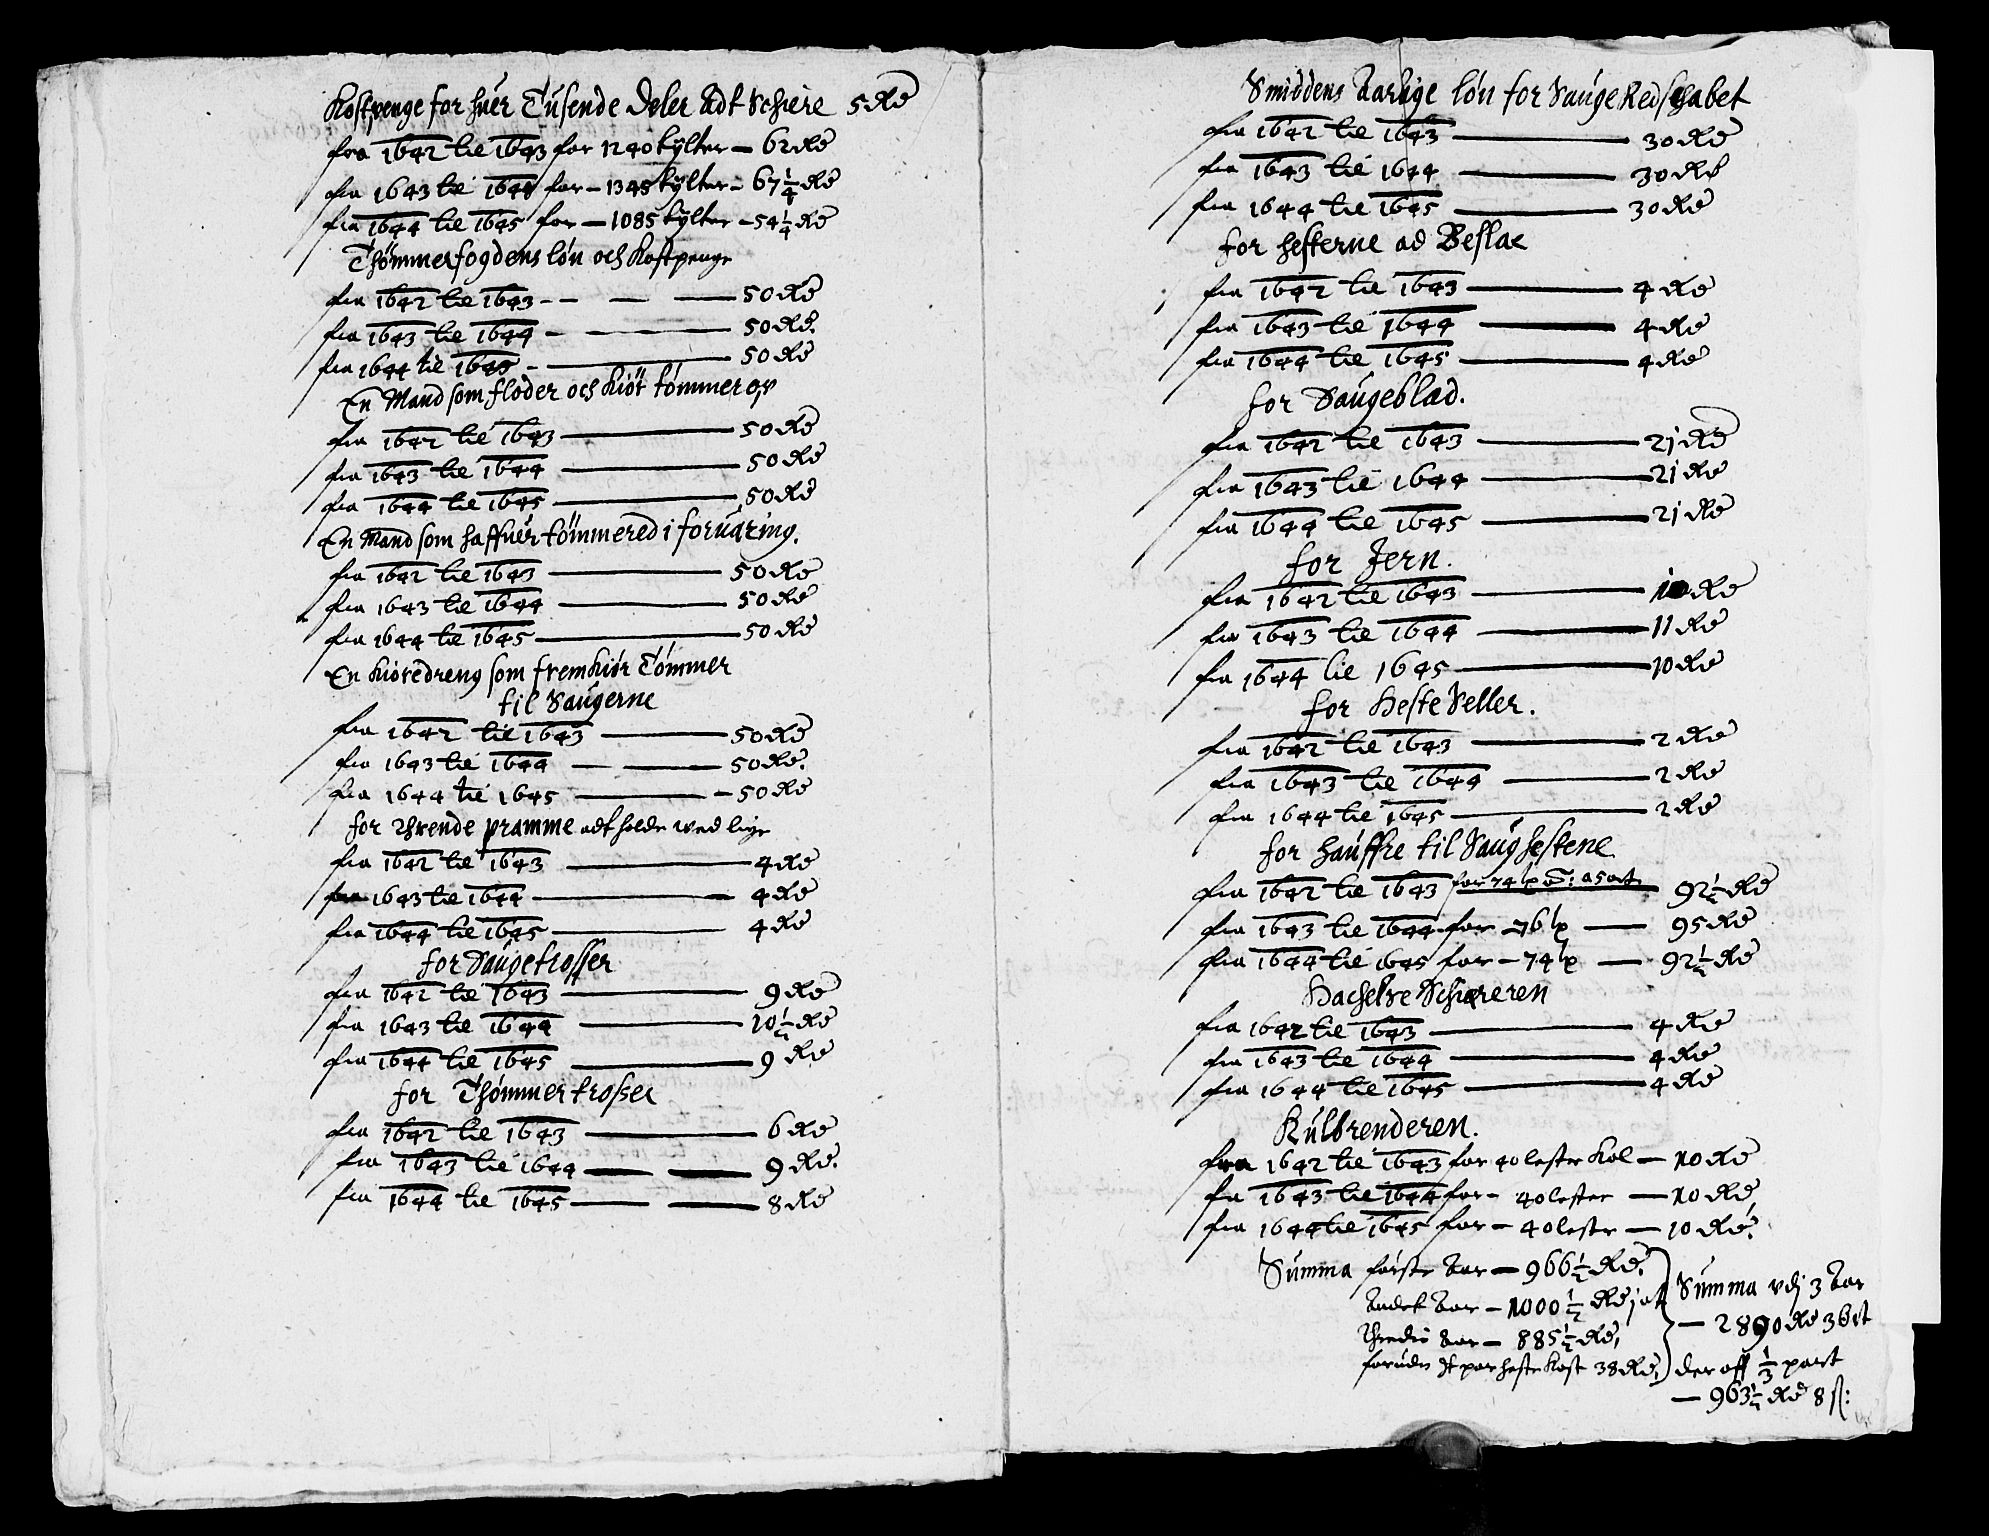 Kostpenge for huer Tusende Deler Adt Schiere 5 Rd
fra 1642 til 1643 for 1240 tylter — 62 Rd
fra 1643 til 1644 for — 1345 tylter — 67 1/4 Rd
fra 1644 til 1645 for — 1085 tylter — 54 1/4 Rd
Thømmerfogdens løn och Kostpenge
fra 1642 til 1643 — 50 Rd
fra 1643 til 1644 — 50 Rd.
fra 1644 til 1645 — 50 Rd
En Mand som floder och Kiöt tømmer op
fra 1642 til 1643 — 50 Rd
fra 1643 til 1644 — 50 Rd
fra 1644 til 1645 — 50 Rd
En Mand som haffuer tømmered i foruaring.
fra 1642 til 1643 — 50 Rd
fra 1643 til 1644 — 50 Rd
fra 1644 til 1645 — 50 Rd
En Kiøredreng som fremkiør Tømmer
til Saugerne
fra 1642 til 1643 — 50 Rd
fra 1643 til 1644 — 50 Rd.
fra 1644 til 1645 — 50 Rd
for thrende pramme adt holde ved lige
fra 1642 til 1643 — 4 Rd
fra 1643 til 1644 — 4 Rd
fra 1644 til 1645 — 4 Rd
for Saugetrosser
fra 1642 til 1643 — 9 Rd
fra 1643 til 1644 — 10 1/2 Rd
fra 1644 til 1645 — 9 Rd
for Thømmertrosser
fra 1642 til 1643 — 6 Rd
fra 1643 til 1644 — 9 Rd.
fra 1644 til 1645 — 8 Rd
Smiddens Aarlige løn for Sauge Redschabet
fra 1642 til 1643 — 30 Rd
fra 1643 til 1644 — 30 Rd
fra 1644 til 1645 — 30 Rd
for hesterne ad Beslae
fra 1642 til 1643 — 4 Rd
fra 1643 til 1644 — 4 Rd
fra 1644 til 1645 — 4 Rd
for Saugeblad.
fra 1642 til 1643 — 21 Rd
fra 1643 til 1644 — 21 Rd
fra 1644 til 1645 — 21 Rd
for Jern.
fra 1642 til 1643 — 10 Rd
fra 1643 til 1644 — 11 Rd
fra 1644 til 1645 — 10 Rd
for HesteSeller.
fra 1642 til 1643 — 2 Rd
fra 1643 til 1644 — 2 Rd
fra 1644 til 1645 — 2 Rd
for hauffre til Saughestene
fra 1642 til 1643 for 74 a 5 ort 92 1/2 Rd
fra 1643 til 1644 for — 76 — 95 Rd
fra 1644 til 1645 for — 74 — 92 1/2 Rd
Hachelse Schiæreren
fra 1642 til 1643 — 4 Rd
fra 1643 til 1644 — 4 Rd
fra 1644 til 1645 — 4 Rd
Kulbrenderen.
fra 1642 til 1643 for 40 lester Kol — 10 Rd
fra 1643 til 1644 for — 40 lester — 10 Rd,
fra 1644 til 1645 for — 40 lestr — 10 Rd.
Summa første Aar — 966 1/2 Rd.
Andet Aar — 1000 1/2 Rd j ort
Thredie Aar — 885 1/2 Rd,
foruden par heste Kost 38 Rd,
Summa vdj 3 Aar
— 2890 Rd 3
der aff 1/3 part
— 963 1/2 Rd 8 s: